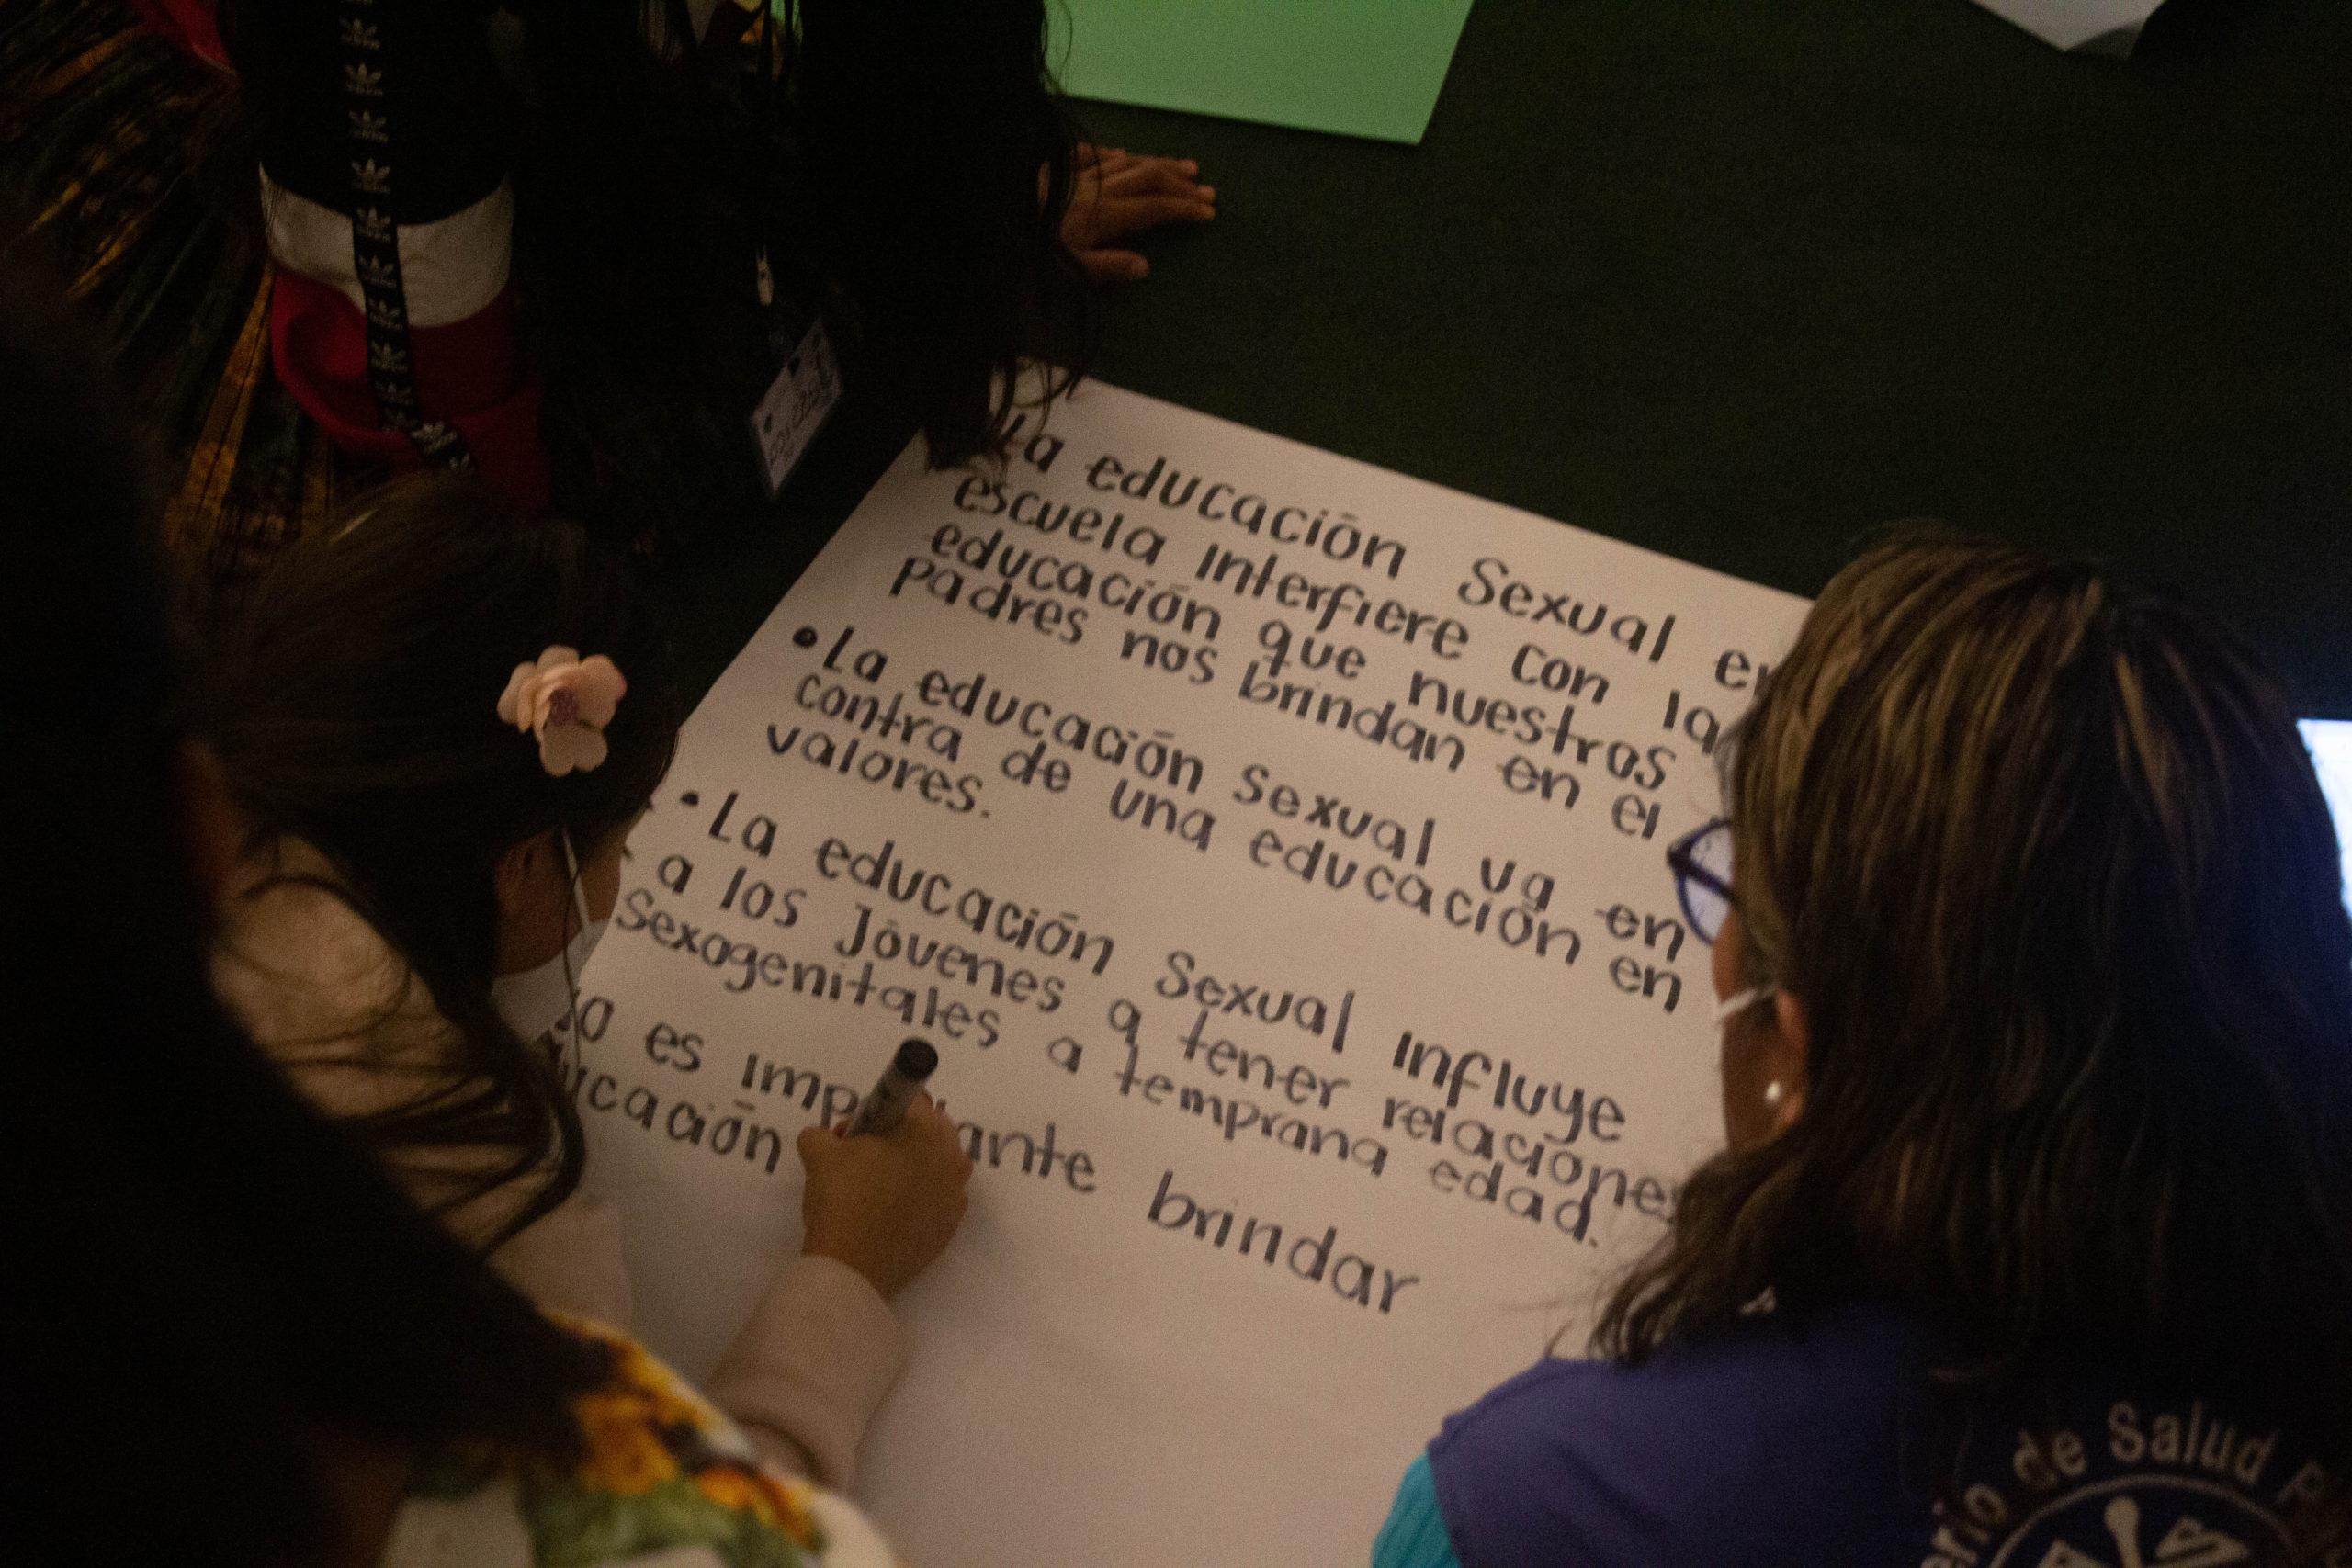 La educación Sexual en
escuela interfiere con la
educación que nuestros
padres nos brindan en el
• La educación sexual va en
contra de una educación en
valores.
• La educación Sexual influye
a los Jóvenes a tener relaciones
sexogenitales a temprana edad.
es importante brindar
educación
de Salud